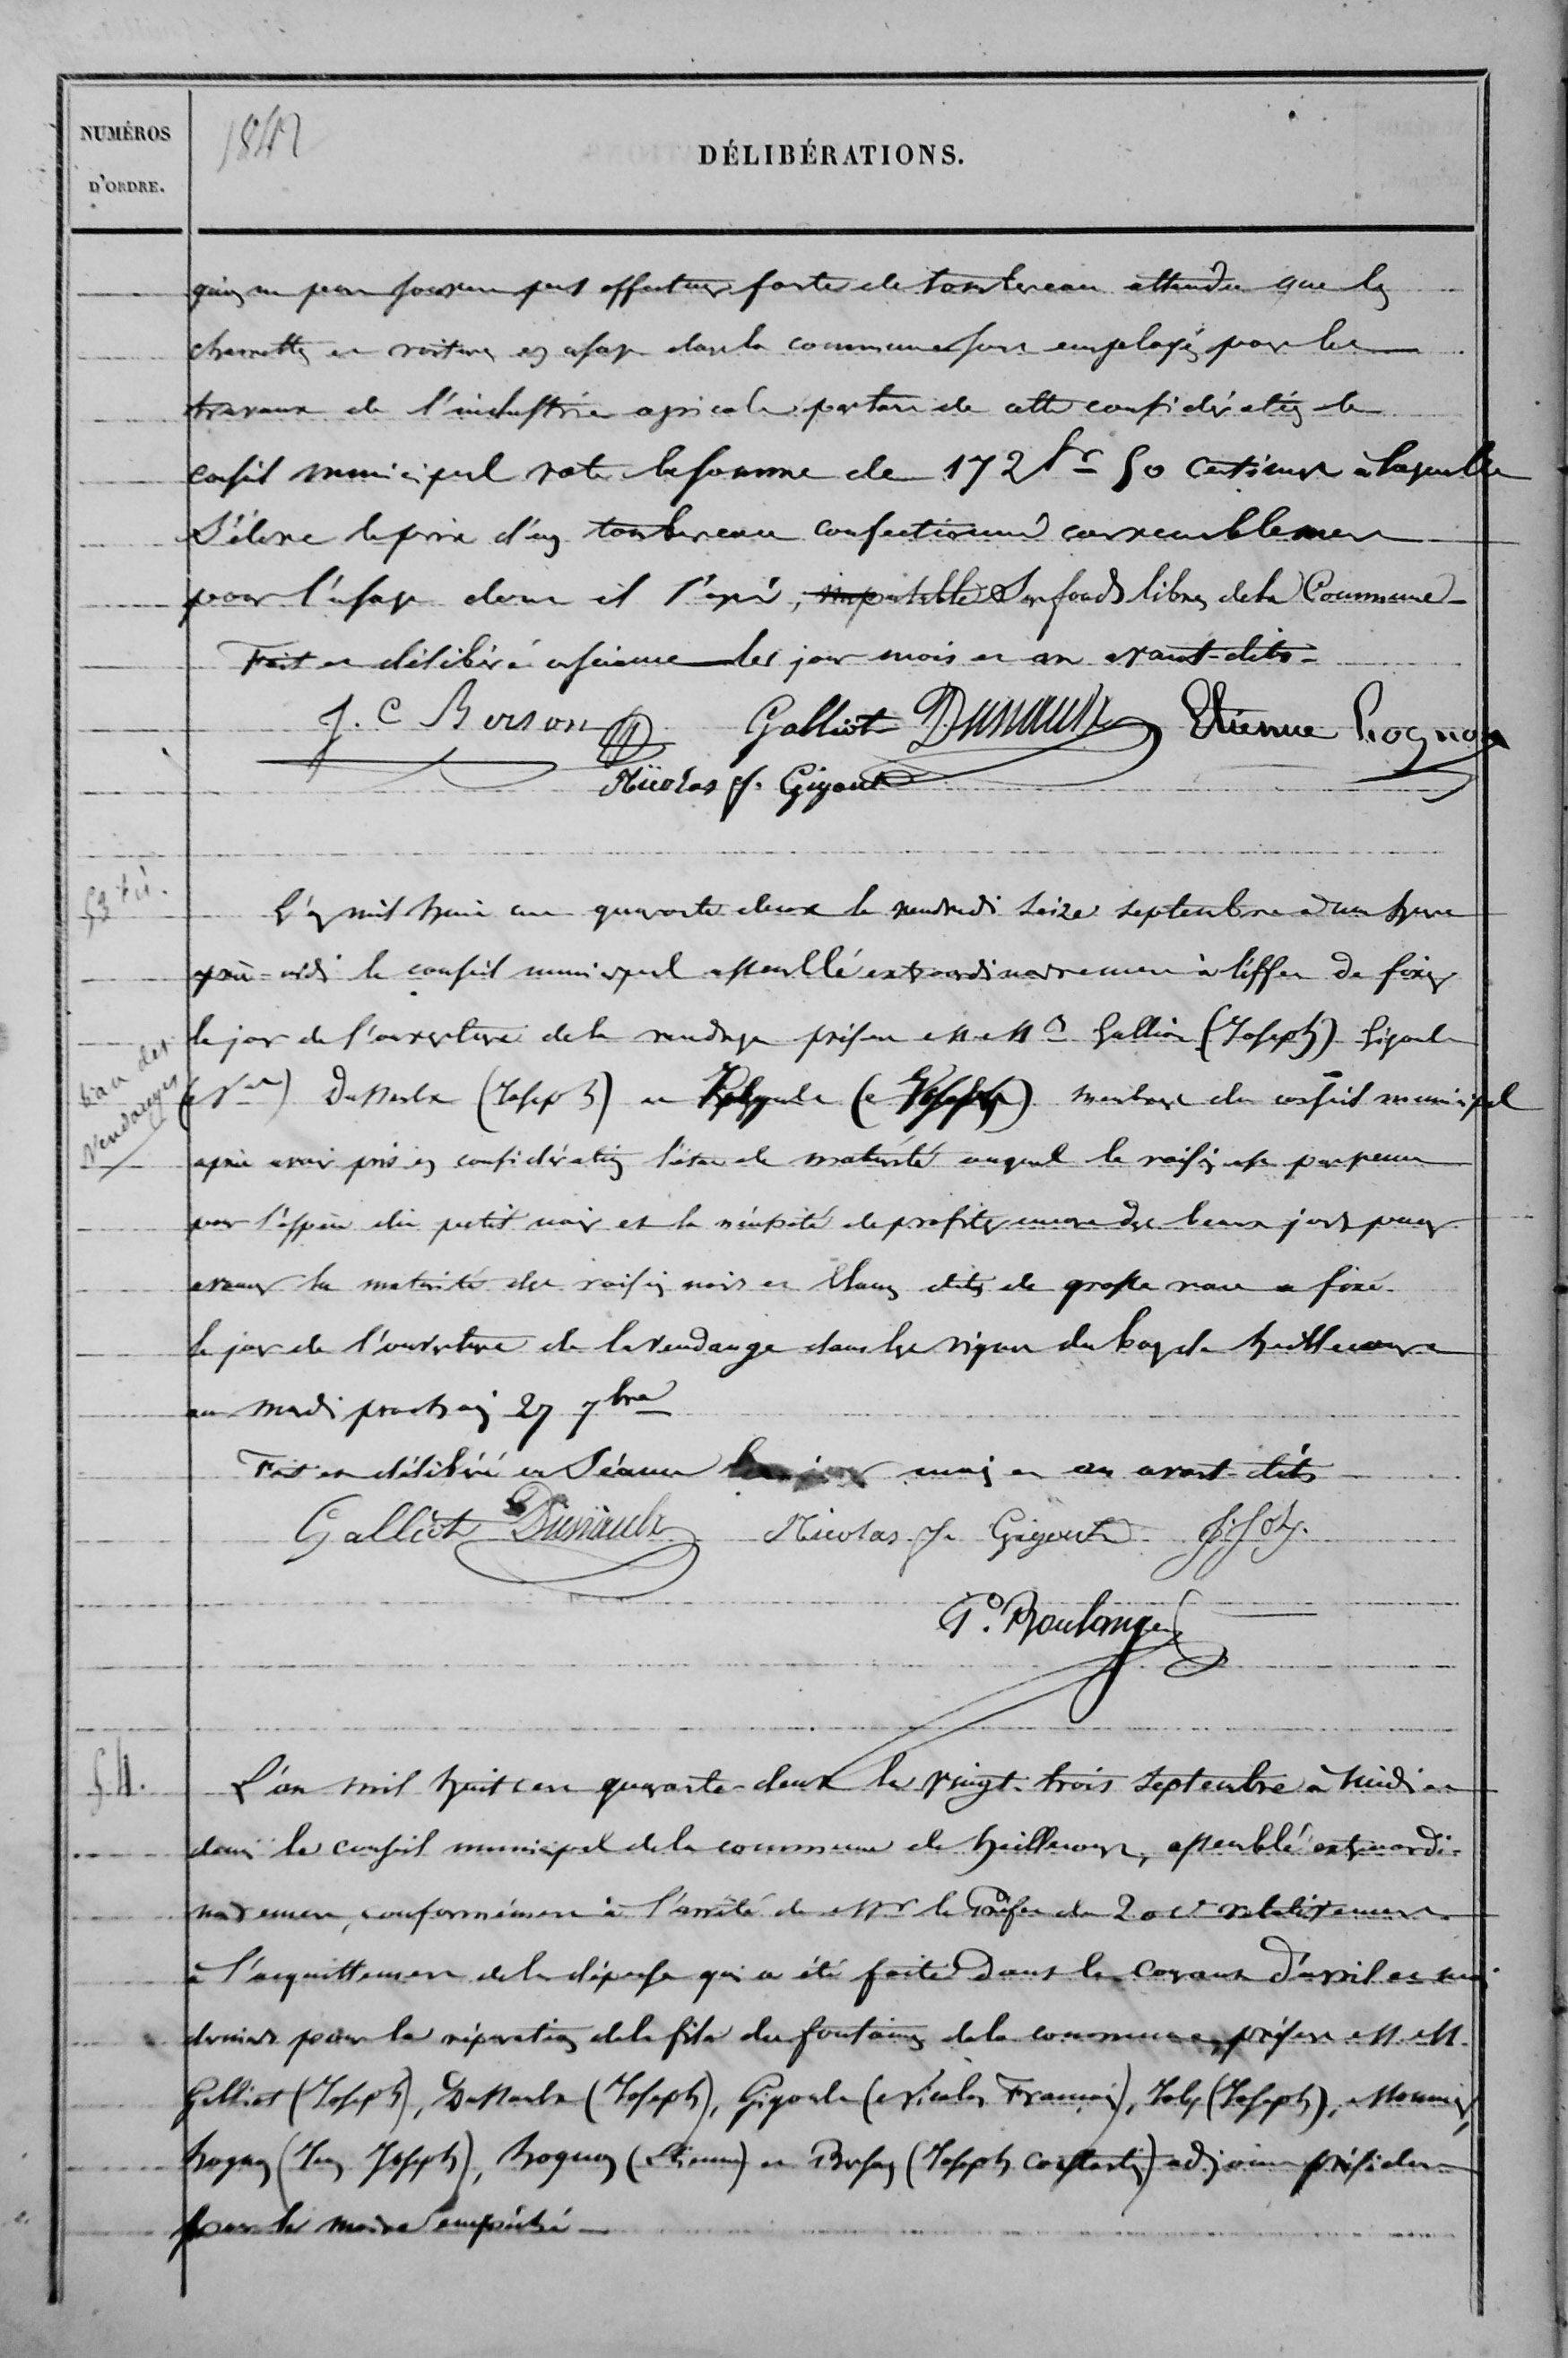 NUMÉROS
D'ORDRE.
1842
DÉLIBÉRATIONS.
effectuer faute de tombereau attendu que les
charrettes et voitures en usage dans la commune sont employés pour les
travaux de l'industrie agricole partant de cette considération le
conseil municipal vote la somme de 172 fr 50 centimes à laquelle
s'élève le prix d'un tombereau confectionné convenablement
pour l'usage dont il s'agit, imputable sur fonds libres de la Commune
Fait et délibéré en séance les jour mois et an avant-dits
J. C Boson Galliot Dussaulx Etienne Rognon
Nicolas f. Gigout
53 bis.
L'an mil huit cent quarante deux le vendredi seize septembre à une heure
après-midi le conseil municipal assemblé extraordinairement à l'effet de fixer
ban des
Vendanges
le jour de l'ouverture de la vendange présent MM. Galliot (Joseph) Gigout
Dussaulx (Joseph) et (Joseph) membres du conseil municipal
après avoir pris en considération l'état de maturité auquel le raisin est parvenu
pour l'espèce du petit noir et la nécessité de profiter encore des beaux jours pour
avancer la maturité des raisins noirs et blancs dits de grosse race a fixé
le jour de l'ouverture de la vendange dans les vignes du ban de heillecourt
au mardi prochain 27 7bre
Fait et délibéré en Séance les jour mois et an avant-dits
Galliot Dussaulx Nicolas f. Gigout J. Joly.
P. Boulanger
54.
L'an mil huit cent quarante-deux le vingt-trois septembre à midi et
demi le conseil municipal de la commune de heillecourt, assemblé extraordi-
nairement, conformément à l'arrêté de Mr le Préfet du 20 ct relativement
à l'acquittement de la dépense qui a été faite dans le courant d'avril et mai
derniers pour la réparation de la file des fontaines de la commune, présent MM.
Galliot (Joseph), Dussaulx (Joseph), Gigout (Nicolas François), Joly (Joseph), Monnier,
Rognon (Jean Joseph), Rognon (Etienne) et Boson (Joseph Constantin) adjoint président
pour le maire empêché